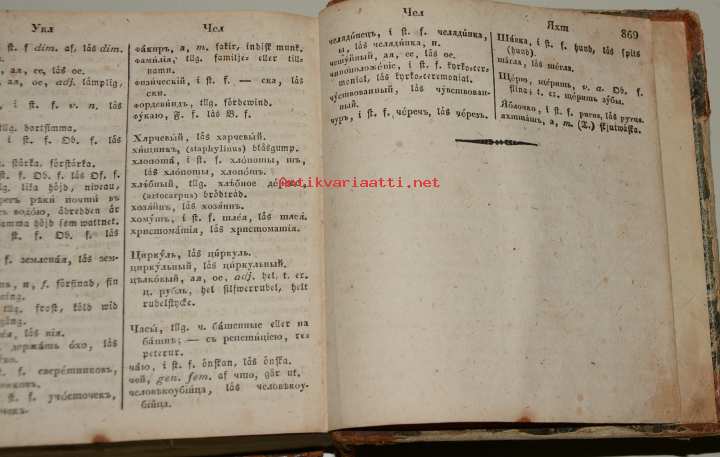 Увл
Чел
st. f dim. af, läs dim.
ая, ее, läs ое.
ая, ое, adj. lämplig,
i st. f. v. n. läs
tllg. bortsimma.
i st. f. Ob. f. läs
stärka, förstärka.
st. f. Ob. f. läs Of. f.
lika höjd, niveau,
рекъ рѣки почти въ
водою, åbredden är
samma höjd som wattnet.
st. f. Ob. f. läs
f. земленая, läs зем-
n, f. förfinad, fin
tllg. frost, köld wid
läs нія.
держать ухо, läs
f. сверстниковъ,
st. f. участочекъ,
Факиръ, а, m. fakir, indisk munk.
фамилія, tllg. familje- eller till-
namn.
физическій, i st. f. — ска, läs
ски.
фордевиндъ, tllg. fördewind.
фукаю, F. f. läs B. f.
Харчевый, läs харчевый.
хищникъ, (staphylinus) blåsgump.
хлопота, i st. f. хлопоты, тъ,
läs хлопоты, хлопотъ.
хлѣбный, tllg. хлѣбное дерево,
(artocarpus) brödträd.
хозяинъ, läs хозяинъ.
хомутъ, i st. f. шлея, läs шлея.
христоматія, läs христоматія.
Циркуль, läs циркуль.
циркульный, läs циркульный.
цѣлковый, ая, ое, adj. hel, t. ex.
ц. рубль, hel silfwerrubel, helt
rubelstycke.
Часы, tllg. ч. башенные eller на
башнѣ; — съ репетиціею, re-
peterur.
чаю, i st. f. önskan, läs önska.
чей, gen. fem. af что, går ut.
человѣкоубійца, läs человѣкоу-
бійца.
Чел
Яхт
869
челядинецъ, i st. f. челядинка,
ы, läs челядинка, и.
чешуйный, ая, ее, läs ое.
чиноположеніе, i st. f. kyrko-cer-
monial, läs kyrko-ceremonial.
чувствованный, läs чувствован-
ный.
чуръ, i st. f. черечъ, läs черезъ.
Шавка, i st. f. hund, läs spits
(hund).
шасла, läs шасла.
Щерю, щерить, v. a. Ob. f.
flina; t. ex. щерить зубы.
Яблонко, i st. f. purus, läs pyrus.
яхташъ, а, m. (T.) skjutwäska.
antikvariaatti.net
Чел